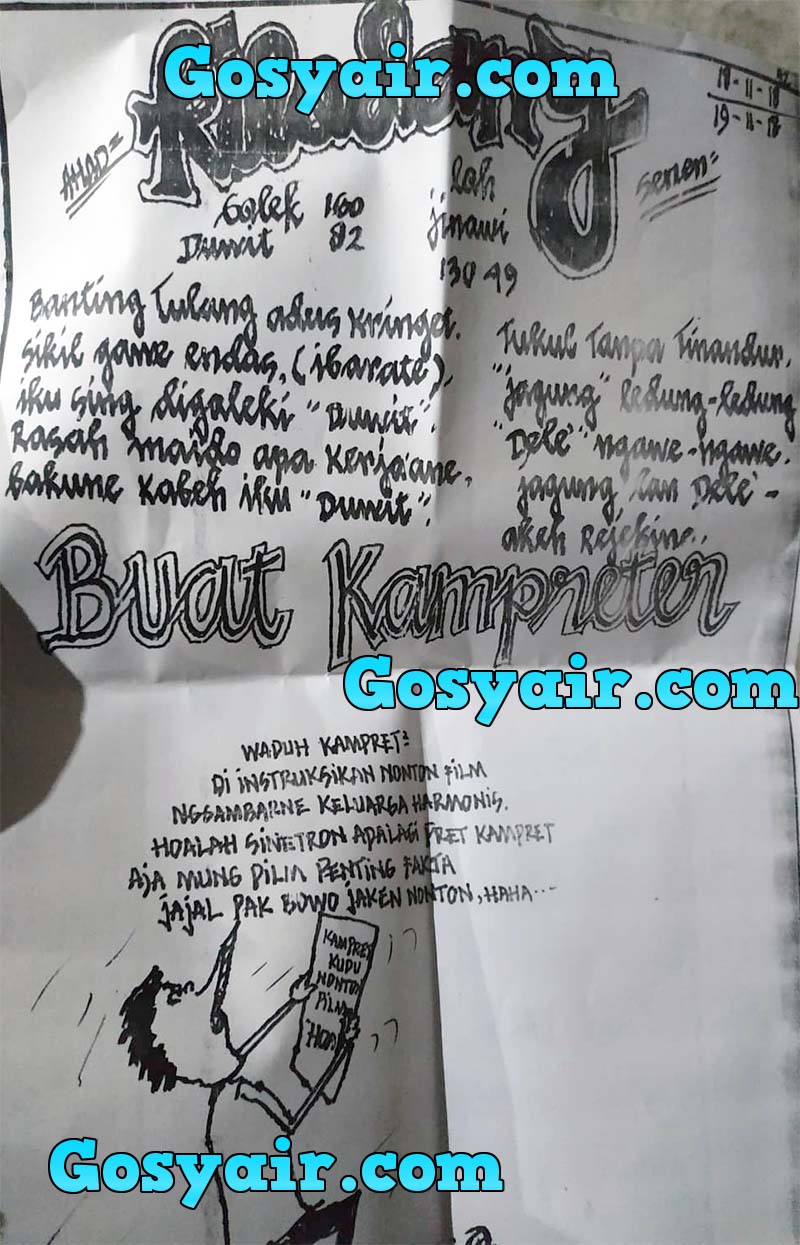 Gosyair.com
18-11-18
19-11-18
AHAD =
Senen =
Golek 160
Duwit 82
Loh
jinawi
130 49
Banting Tulang adus kringet.
Sikil gawe endas, (ibarate),
iku sing digoleki "Duwit".
Rasah maido apa kerjaane,
bakune kabeh iku "Duwit".
Tukul Tanpa Tinandur.
"jagung" ledung-ledung
"Dele" ngawe-ngawe.
jagung lan Dele -
akeh Rejekine..
Buat Kampreter
Gosyair.com
WADUH KAMPRET²
DI INSTRUKSIKAN NONTON FILM
NGGAMBARNE KELUARGA HARMONIS.
HOALAH SINETRON APALAGI PRET KAMPRET
AJA MUNG PILM PENTING FAKTA
JAJAL PAK BOWO JAKEN NONTON, HAHA...
KAMPRET
KUDU
NONTON
PILM
Gosyair.com